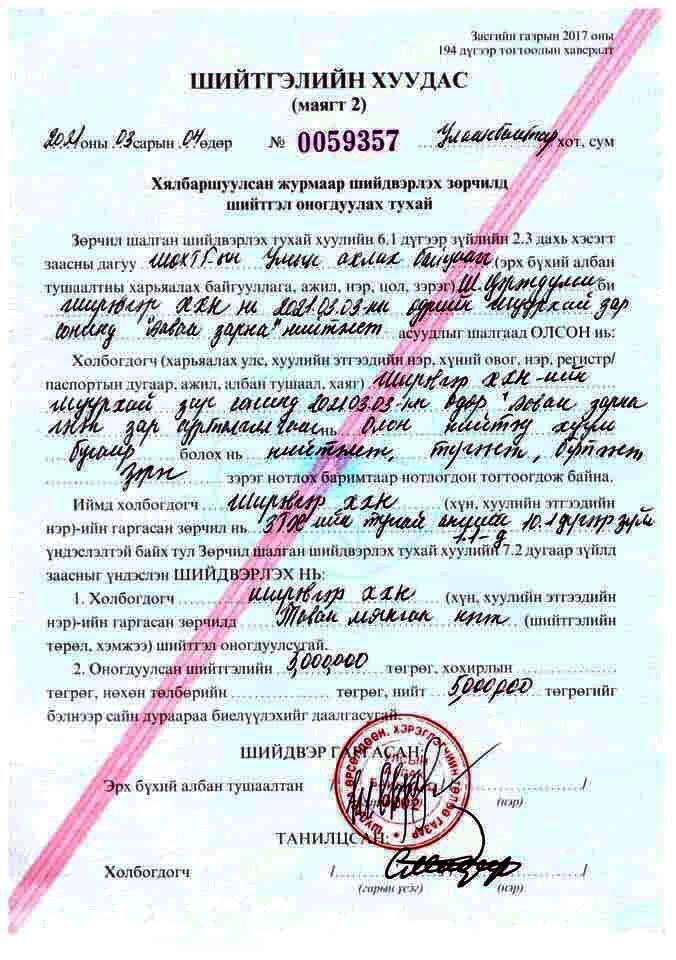 Засгийн газрын 2017 оны
194 дүгээр тогтоолын хавсралт
ШИЙТГЭЛИЙН ХУУДАС
(маягт 2)
2021 оны 03 сарын 04 өдөр № 0059357 Улаанбаатар хот, сум
Хялбаршуулсан журмаар шийдвэрлэх зөрчилд
шийтгэл оногдуулах тухай
Зөрчил шалган шийдвэрлэх тухай хуулийн 6.1 дүгээр зүйлийн 2.3 дахь хэсэгт
заасны дагуу ШӨХТГ-ын Улсын ахлах байцаагч (эрх бүхий албан
тушаалтны харьяалах байгууллага, ажил, нэр, цол, зэрэг) би
ХХК нь 2021.03.03-ны өдрийн шуурхай зар
сонинд зарна" нийтлэлт асуудлыг шалгаад ОЛСОН нь:
Холбогдогч (харьяалах улс, хуулийн этгээдийн нэр, хүний овог, нэр, регистр/
паспортын дугаар, ажил, албан тушаал, хаяг) ХХК-ийн
шуурхай зар сонинд 2021.03.03-ны өдөр зарна
гэсэн зар нь Олон нийтэд хууль
бусаар болох нь нийтлэж, түгээж,
зэрэг нотлох баримтаар нотлогдон тогтоогдож байна.
Иймд холбогдогч ХХК (хүн, хуулийн этгээдийн
нэр)-ийн гаргасан зөрчил нь ЗТХ-ийн тусгай ангийн 10.1 дүгээр зүйл
1.1-д
үндэслэлтэй байх тул Зөрчил шалган шийдвэрлэх тухай хуулийн 7.2 дугаар зүйлд
заасныг үндэслэн ШИЙДВЭРЛЭХ НЬ:
1. Холбогдогч ХХК (хүн, хуулийн этгээдийн
нэр)-ийн гаргасан зөрчилд Таван мянган нэгж (шийтгэлийн
төрөл, хэмжээ) шийтгэл оногдуулсугай.
2. Оногдуулсан шийтгэлийн 5,000,000 төгрөг, хохирлын
төгрөг, нөхөн төлбөрийн төгрөг, нийт 5,000,000 төгрөгийг
бэлнээр сайн дураараа биелүүлэхийг даалгасугай.
ШИЙДВЭР ГАРГАСАН:
Эрх бүхий албан тушаалтан / /
(нэр)
ТАНИЛЦСАН:
Холбогдогч / /
(гарын үсэг) (нэр)